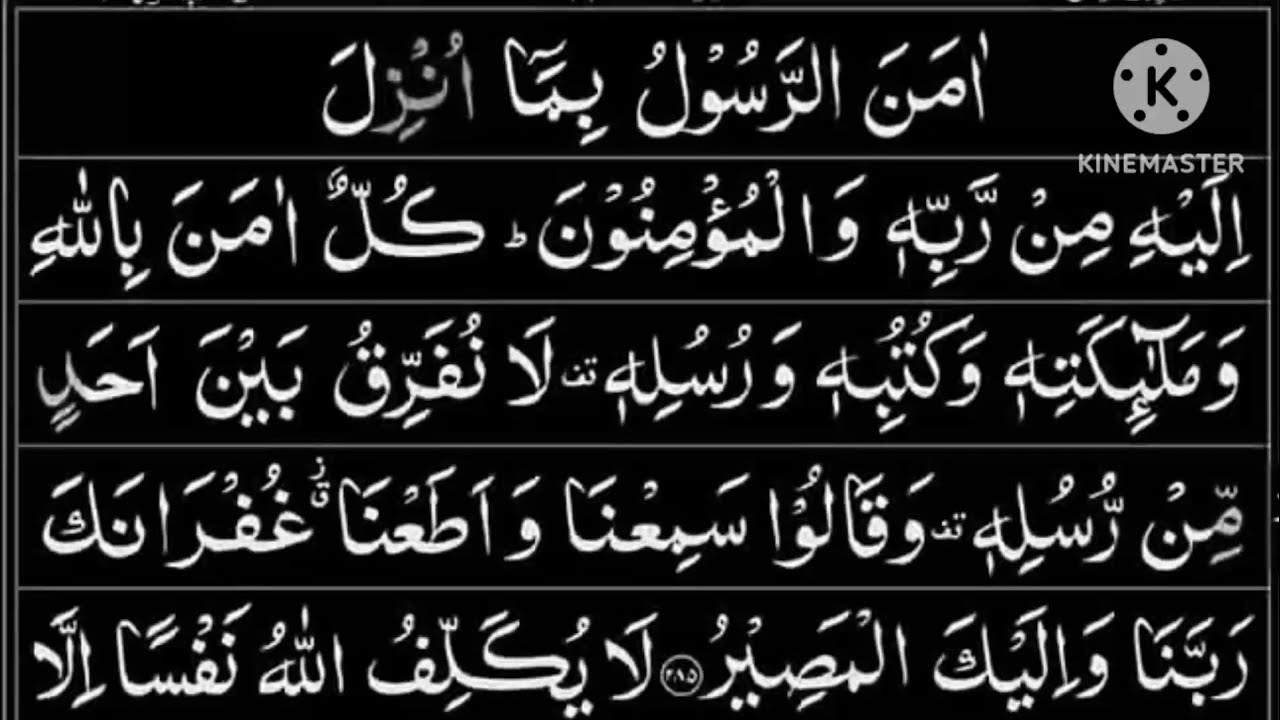 اٰمَنَ الرَّسُوْلُ بِمَاۤ اُنْزِلَ
KINEMASTER
اِلَيْهِ مِنْ رَّبِّهٖ وَالْمُؤْمِنُوْنَ ؕ كُلٌّ اٰمَنَ بِاللّٰهِ
وَمَلٰٓىِٕكَتِهٖ وَكُتُبِهٖ وَرُسُلِهٖ قف لَا نُفَرِّقُ بَيْنَ اَحَدٍ
مِّنْ رُّسُلِهٖ قف وَقَالُوْا سَمِعْنَا وَاَطَعْنَا ؗ ق غُفْرَانَكَ
رَبَّنَا وَاِلَيْكَ الْمَصِيْرُ ۲۸۵ لَا يُكَلِّفُ اللّٰهُ نَفْسًا اِلَّا